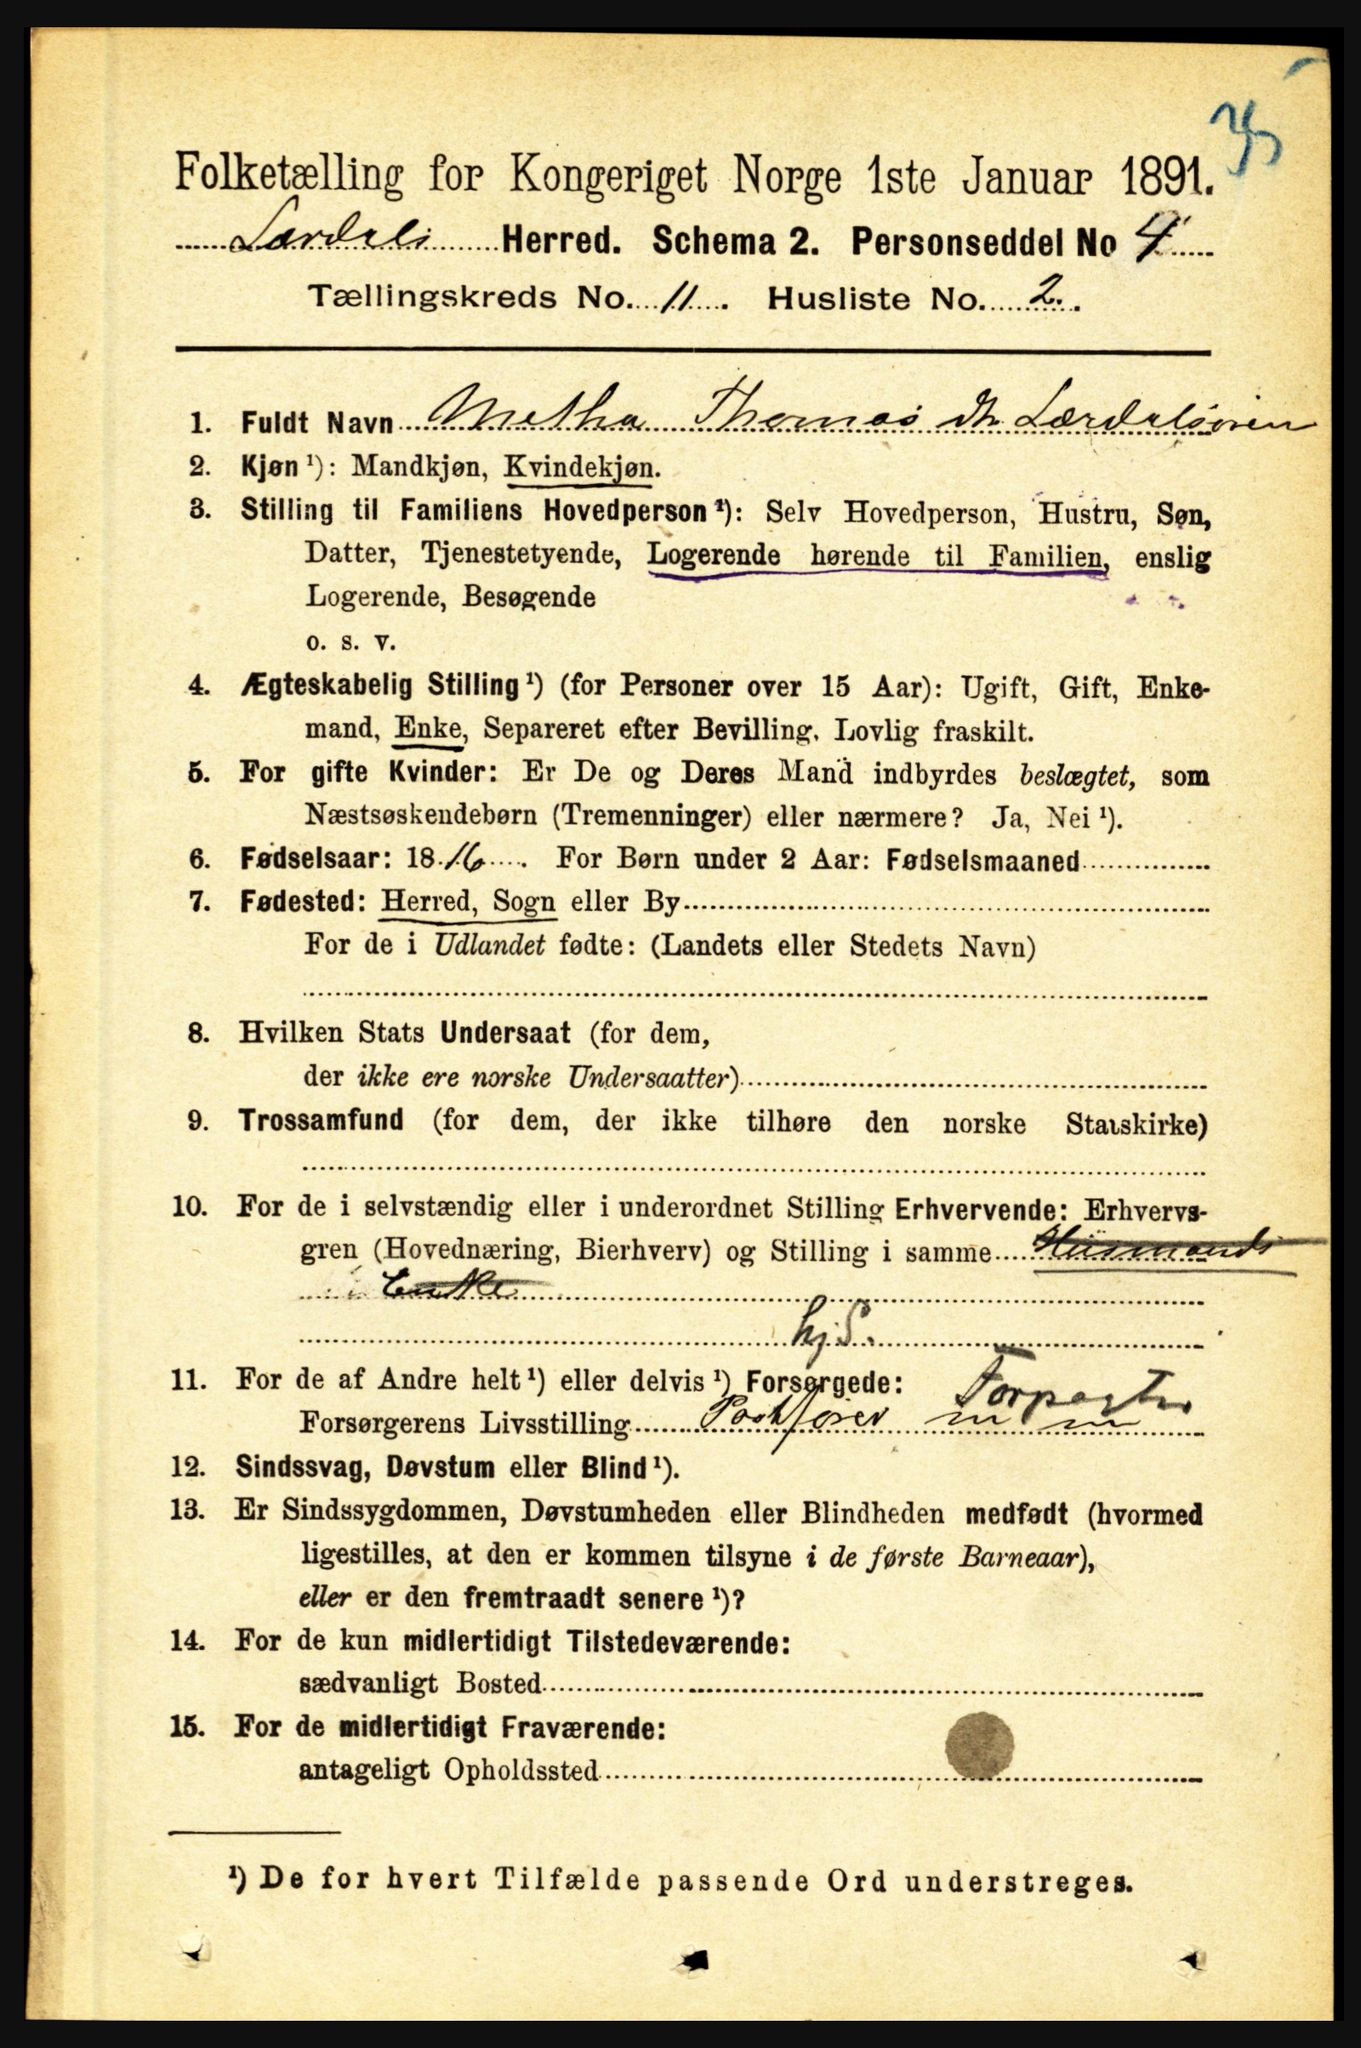 35
Folketælling for Kongeriget Norge 1ste Januar 1891.
Lærdals Herred. Schema 2. Personseddel No 4
Tællingskreds No. 11. Husliste No. 2.
1. Fuldt Navn Metha Thomas dtr Lærdalsøren
2. Kjøn ¹): Mandkjøn, Kvindekjøn.
3. Stilling til Familiens Hovedperson ¹): Selv Hovedperson, Hustru, Søn,
Datter, Tjenestetyende, Logerende hørende til Familien, enslig
Logerende, Besøgende
o. s. v.
4. Ægteskabelig Stilling ¹) (for Personer over 15 Aar): Ugift, Gift, Enke-
mand, Enke, Separeret efter Bevilling. Lovlig fraskilt.
5. For gifte Kvinder: Er De og Deres Mand indbyrdes beslægtet, som
Næstsøskendebørn (Tremenninger) eller nærmere? Ja, Nei ¹).
6. Fødselsaar: 1816. For Børn under 2 Aar: Fødselsmaaned
7. Fødested: Herred, Sogn eller By
For de i Udlandet fødte: (Landets eller Stedets Navn)
8. Hvilken Stats Undersaat (for dem,
der ikke ere norske Undersaatter)
9. Trossamfund (for dem, der ikke tilhøre den norske Statskirke)
10. For de i selvstændig eller i underordnet Stilling Erhvervende: Erhvervs-
gren (Hovednæring, Bierhverv) og Stilling i samme Husmands
Enke
hj. S.
11. For de af Andre helt ¹) eller delvis ¹) Forsørgede: Forpagter
Forsørgerens Livsstilling Postfører m m
12. Sindssvag, Døvstum eller Blind ¹).
13. Er Sindssygdommen, Døvstumheden eller Blindheden medfødt (hvormed
ligestilles, at den er kommen tilsyne i de første Barneaar),
eller er den fremtraadt senere ¹)?
14. For de kun midlertidigt Tilstedeværende:
sædvanligt Bosted
15. For de midlertidigt Fraværende:
antageligt Opholdssted
¹) De for hvert Tilfælde passende Ord understreges.